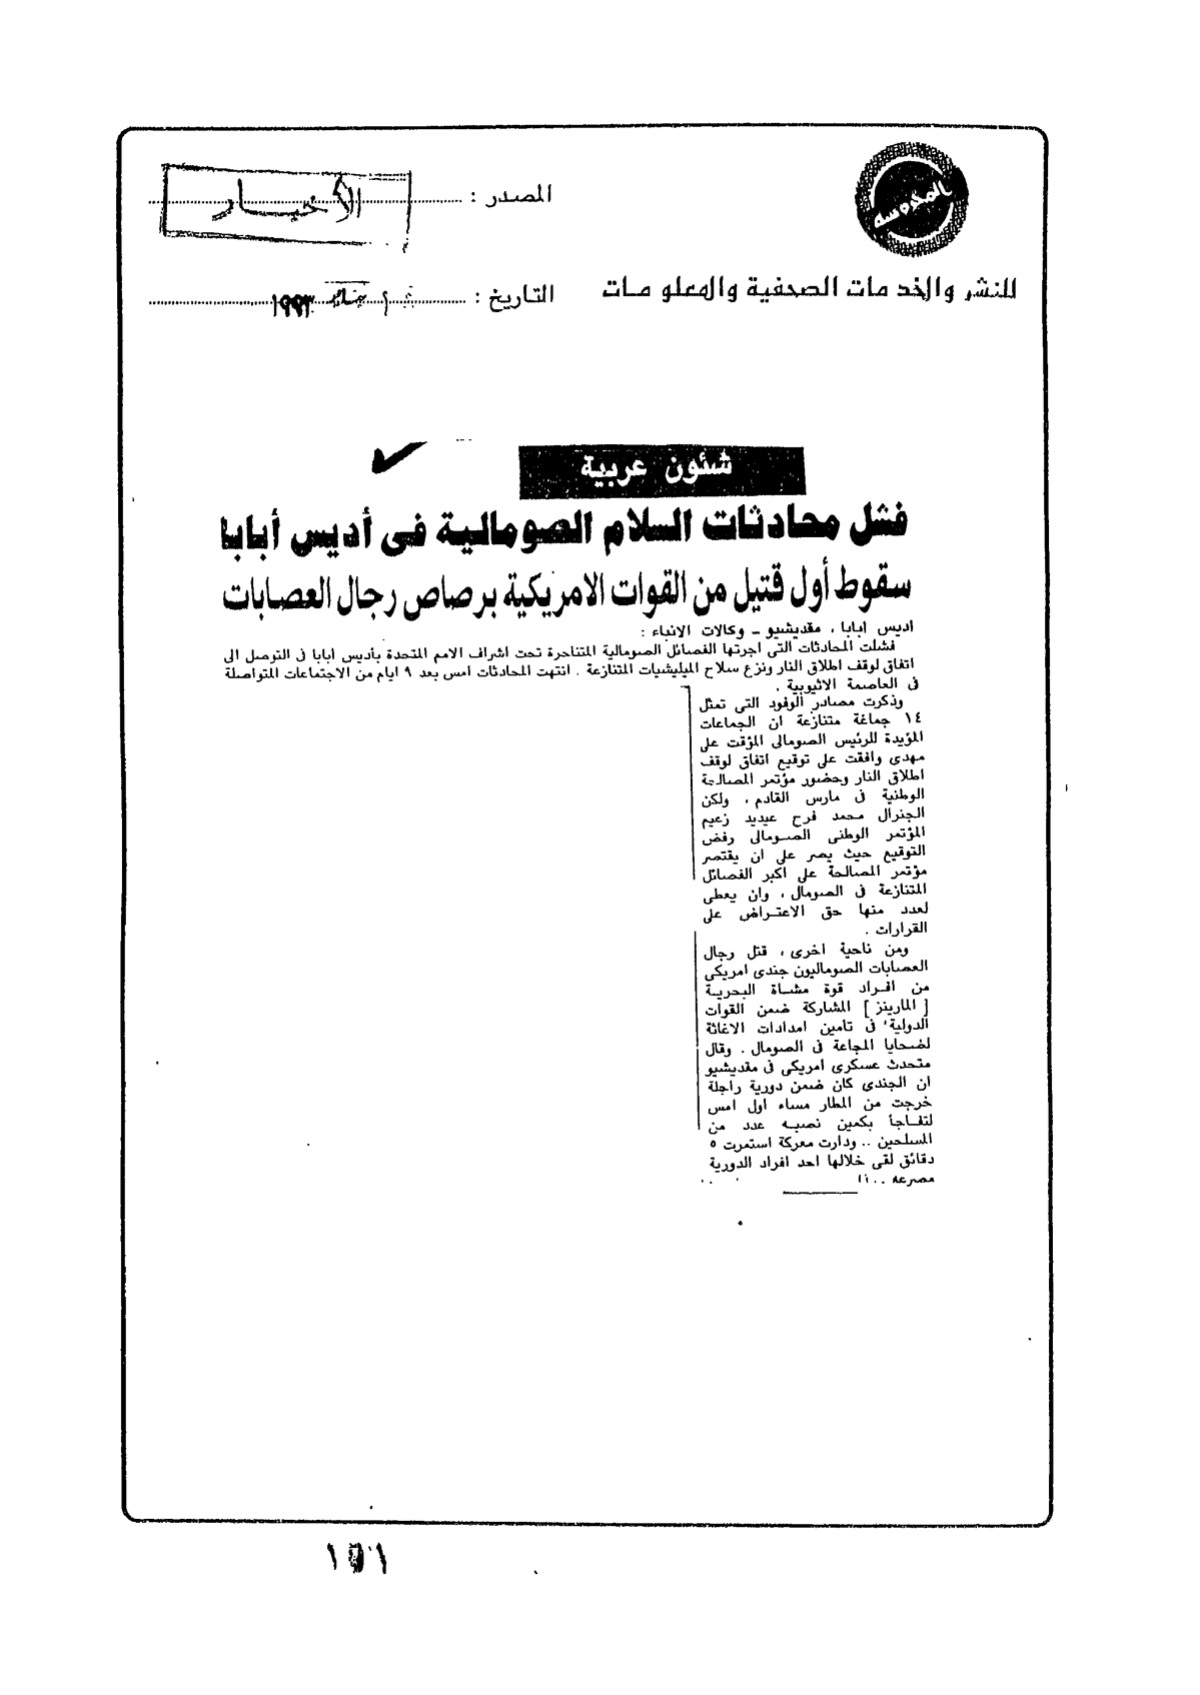 المحروسة
المصدر : الأخبار
للنشر والخدمات الصحفية والمعلومات
التاريخ : يناير ١٩٩٣
شئون عربية
فشل محادثات السلام الصومالية فى أديس أبابا
سقوط أول قتيل من القوات الامريكية برصاص رجال العصابات
اديس ابابا ، مقديشيو - وكالات الانباء :
فشلت المحادثات التى اجرتها الفصائل الصومالية المتناحرة تحت اشراف الامم المتحدة بأديس ابابا فى التوصل الى
اتفاق لوقف اطلاق النار ونزع سلاح الميليشيات المتنازعة . انتهت المحادثات امس بعد ٩ ايام من الاجتماعات المتواصلة
فى العاصمة الاثيوبية .
وذكرت مصادر الوفود التى تمثل
١٤ جماعة متنازعة ان الجماعات
المؤيدة للرئيس الصومالى المؤقت على
مهدى وافقت على توقيع اتفاق لوقف
اطلاق النار وحضور مؤتمر المصالحة
الوطنية فى مارس القادم ، ولكن
الجنرال محمد فرح عيديد زعيم
المؤتمر الوطنى الصومالى رفض
التوقيع حيث يصر على ان يقتصر
مؤتمر المصالحة على اكبر الفصائل
المتنازعة فى الصومال ، وان يعطى
لعدد منها حق الاعتراض على
القرارات .
ومن ناحية اخرى ، قتل رجال
العصابات الصوماليون جندى امريكى
من افراد قوة مشاة البحرية
[ المارينز ] المشاركة ضمن القوات
الدولية فى تامين امدادات الاغاثة
لضحايا المجاعة فى الصومال . وقال
متحدث عسكرى امريكى فى مقديشيو
ان الجندى كان ضمن دورية راجلة
خرجت من المطار مساء اول امس
لتفاجأ بكمين نصبه عدد من
المسلحين .. ودارت معركة استمرت ٥
دقائق لقى خلالها احد افراد الدورية
مصرعه ..